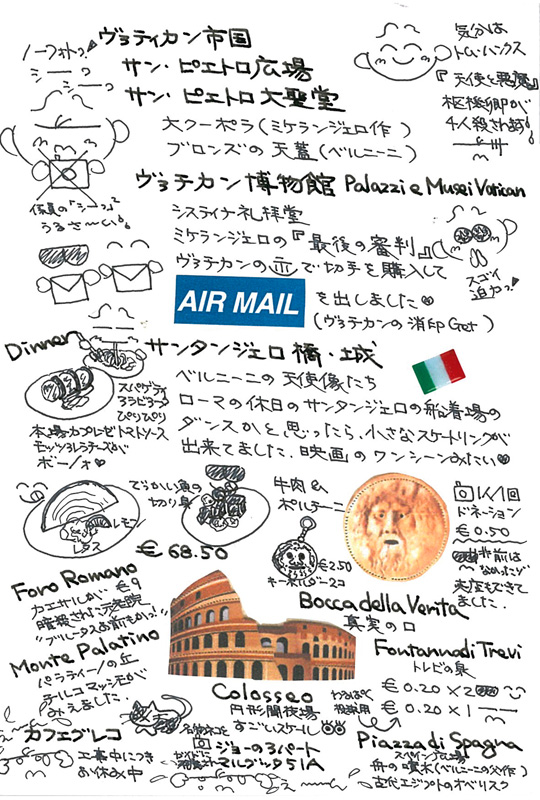 ヴァティカン市国
サン・ピエトロ広場
サン・ピエトロ大聖堂
大クーポラ(ミケランジェロ作)
ブロンズの天蓋(ベルニーニ)
ノーフォトっ!
シーーっ
シーーっ
係員の「シーっ」
うるさ〜い
気分は
トム・ハンクス
『天使と悪魔』
枢機卿が
4人殺されます
ヴァチカン博物館 Palazzi e Musei Vatican
システィナ礼拝堂
ミケランジェロの『最後の審判』
ヴァチカンの〒で切手を購入して
AIR MAIL
を出しました
(ヴァチカンの消印Get)
スゴイ
迫力っ!
Dinner
スパゲティ
アラビアータ
ぴりぴり
トマトソース
本場カプレーゼ
モッツァレラチーズが
ボーノ
サンタンジェロ橋・城
ベルニーニの天使像たち
ローマの休日のサンタンジェロの船着場の
ダンスかと思ったら、小さなスケートリンクが
出来てました。映画のワンシーンみたい
でっかい魚の
切り身
レモン
レタス
牛肉&
ポルチーニ
€68.50
€2.50
キーホルダー2コ
1人1回
ドネーション
€0.50
前は
なかったゾ
売店もできて
ました。
Bocca della Verita
真実の口
Foro Romano
カエサルが €9
暗殺された元老院
"ブルータスお前もかっ!"
Monte Palatino
パラティーノの丘
チルコマッシモが
みえました。
Colosseo
円形闘技場
すごいスケール
Fontanna di Trevi
トレビの泉
€0.20×2
€0.20×1
カフェグレコ
工事中につき
お休み中
ジョーのアパート
マルグッタ51A
Piazza di Spagna
スペイン広場
舟の噴水(ベルニーニの父作)
古代エジプトのオベリスク